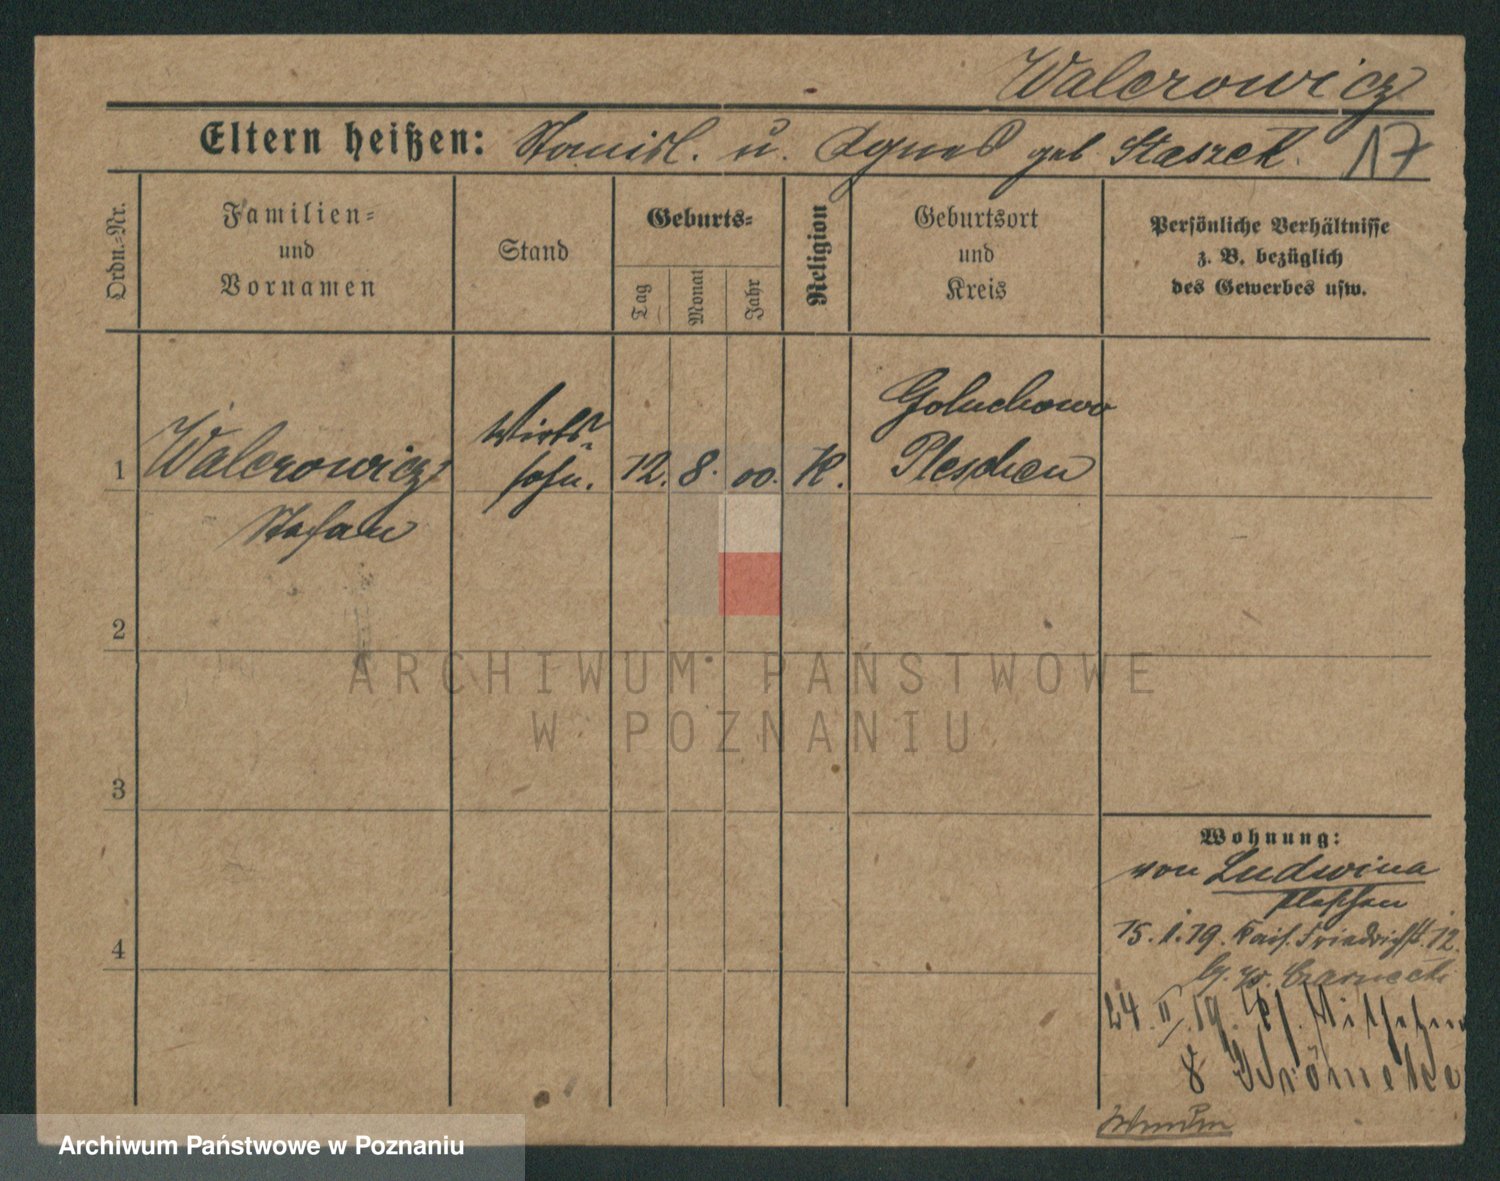 Walcrowicz
Eltern heißen: Stanisl. u. Agnes geb Staszek. 17
Ordn.-Nr.
Familien-
und
Vornamen
Stand
Geburts-
Tag
Monat
Jahr
Religion
Geburtsort
und
Kreis
Persönliche Verhältnisse
z. B. bezüglich
des Gewerbes usw.
1 Walcrowicz Wirts- 12. 8. 00. K. Goluchowo
sohn. Pleschen
Stefan
2
3
4
Wohnung:
von Ludwina
Pleschen
15.1.19. Kais. Friedrichst. 12.
b. Czarnecki
24.II.19.
8
ARCHIWUM PAŃSTWOWE
W POZNANIU
Archiwum Państwowe w Poznaniu